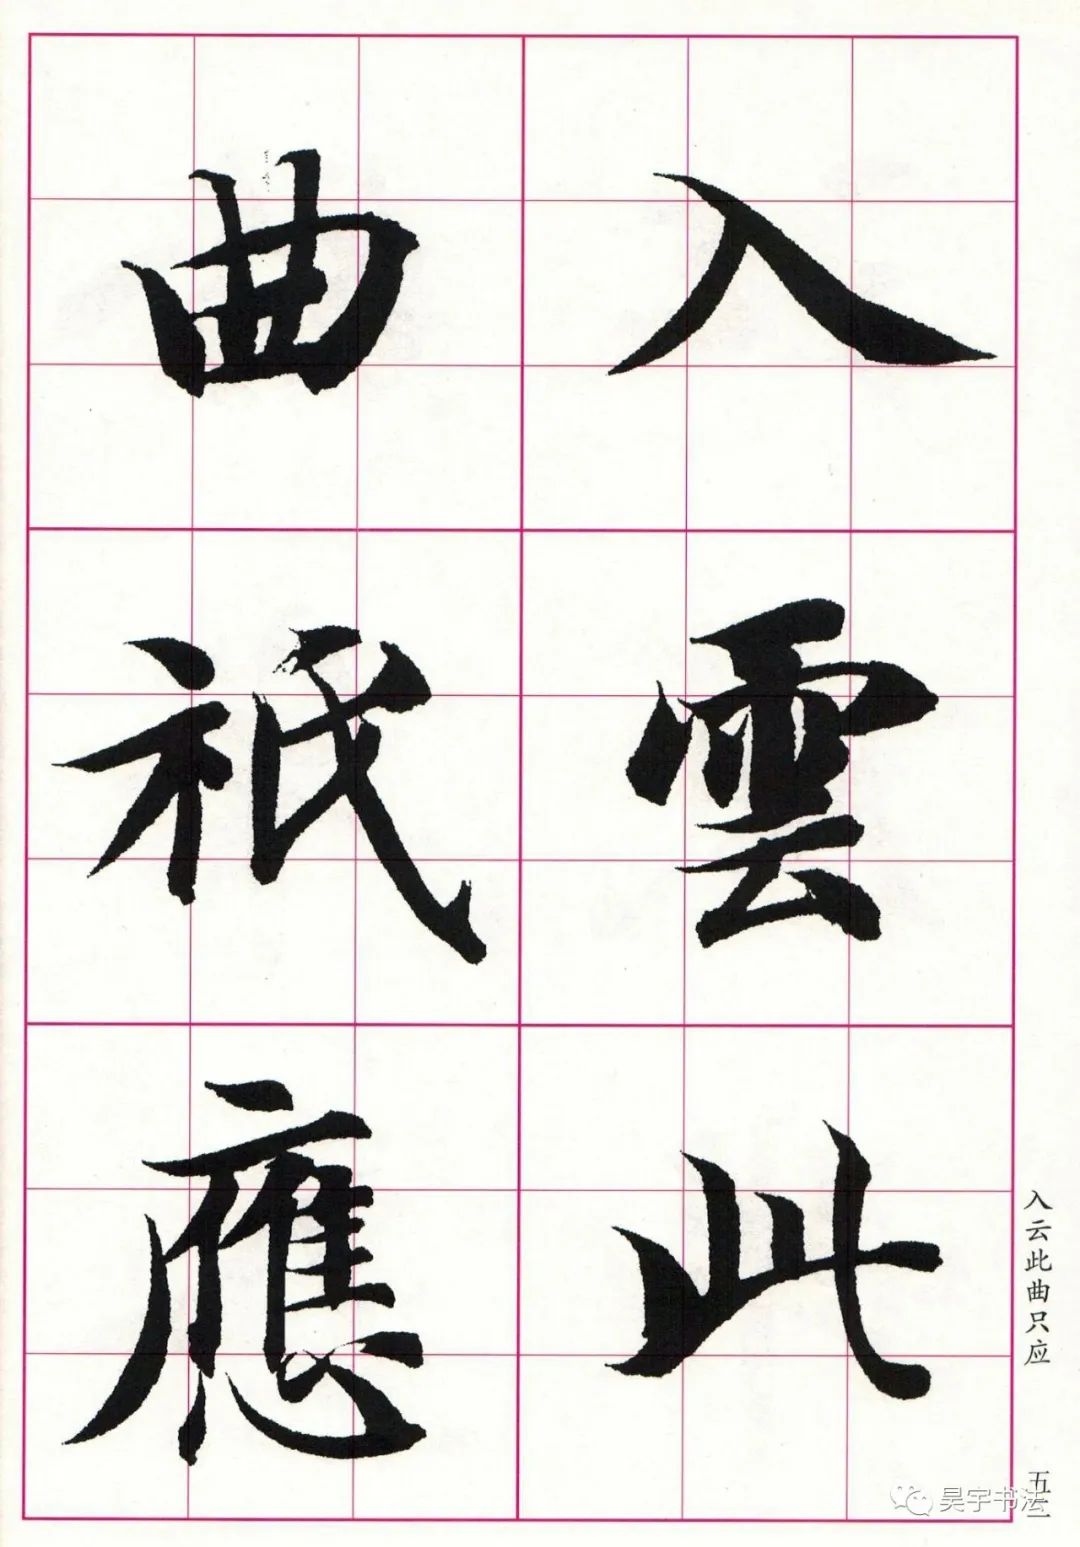 入雲此
曲祇應
入云此曲只应
五二
昊宇书法